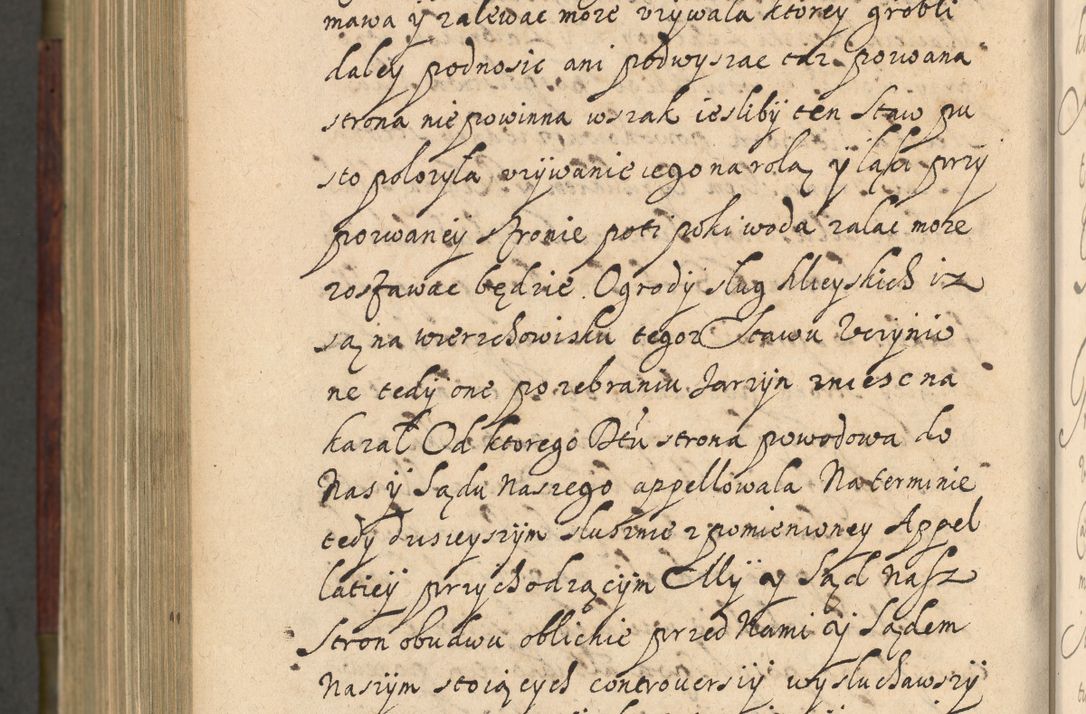 mawa ÿ zalewac może vzÿwala ktorey grobli
daleÿ podnosic ani podwyszac taż pozwana
strona nie powinna wszak iesliby ten Staw pu
sto polozyla vzÿwanie iego na rolą ÿ łąki przÿ
pozwaneÿ stronie poti poki woda zalac może
zostawac będzie. Ogrodÿ sług kluczskich iż
są na wierzchowisku tegoż Stawu Vczÿnio
ne tedÿ one po zebraniu Jarzÿn zniesc na
kazał Od ktorego Dtu strona powodowa do
Nas ÿ Sądu Naszego appellowala Na terminie
tedÿ dzisieÿszÿm słusznie z pomienioneÿ Appel
latieÿ przÿchodzącÿm Mÿ ÿ Sąd Nasz
Stron obudwu oblicnie przed Nami ÿ Sądem
Naszÿm stoiącÿch controuersiÿ wÿsłuchawszÿ